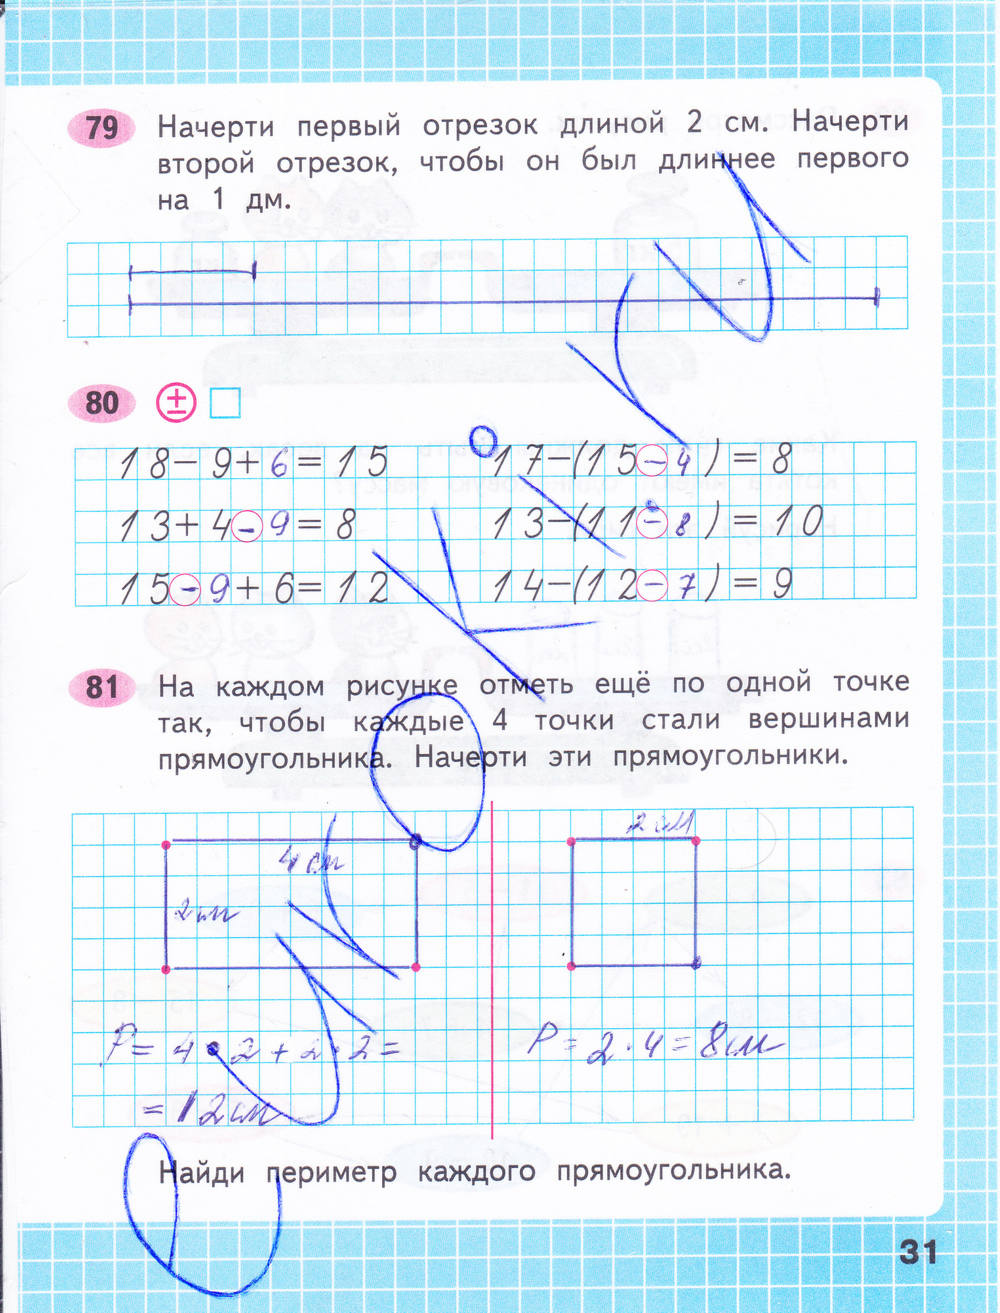 79 Начерти первый отрезок длиной 2 см. Начерти
второй отрезок, чтобы он был длиннее первого
на 1 дм.
80 ±
18-9+6=15
13+4-9=8
15-9+6=12
17-(15-4)=8
13-(11-8)=10
14-(12-7)=9
81 На каждом рисунке отметь ещё по одной точке
так, чтобы каждые 4 точки стали вершинами
прямоугольника. Начерти эти прямоугольники.
4 см
2 см
P= 4·2+2·2=
=12 см
2 см
P=2·4=8см
Найди периметр каждого прямоугольника.
31